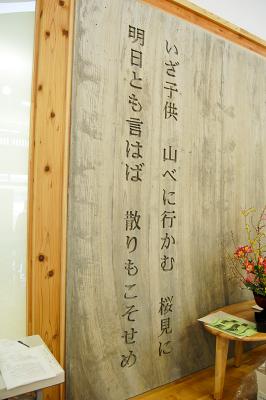 いざ子供　山べに行かむ　桜見に
明日とも言はば　散りもこそせめ